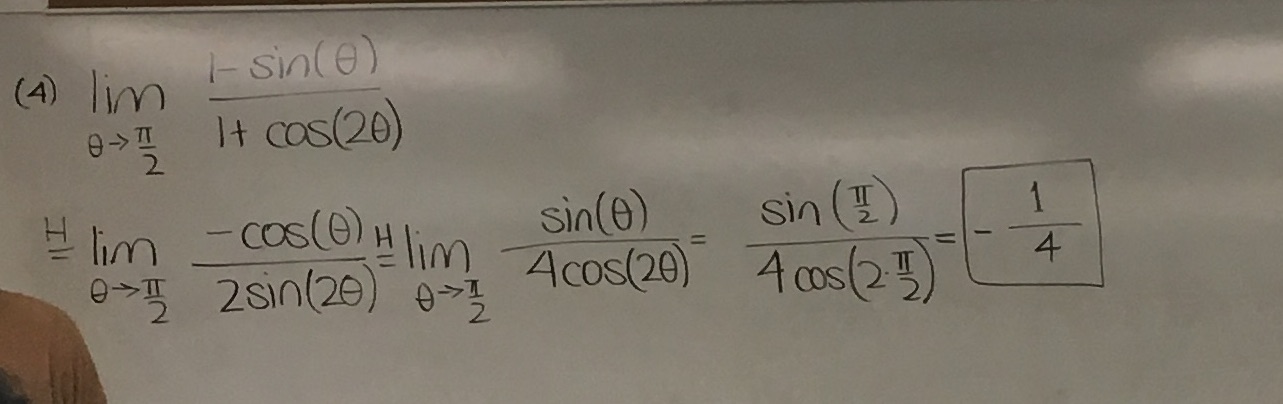 (4) lim θ→π/2 (1 - sin(θ))/(1 + cos(2θ))
=ᴴ lim θ→π/2 (-cos(θ))/(2sin(2θ)) =ᴴ lim θ→π/2 (sin(θ))/(4cos(2θ)) = (sin(π/2))/(4cos(2·π/2)) = -1/4